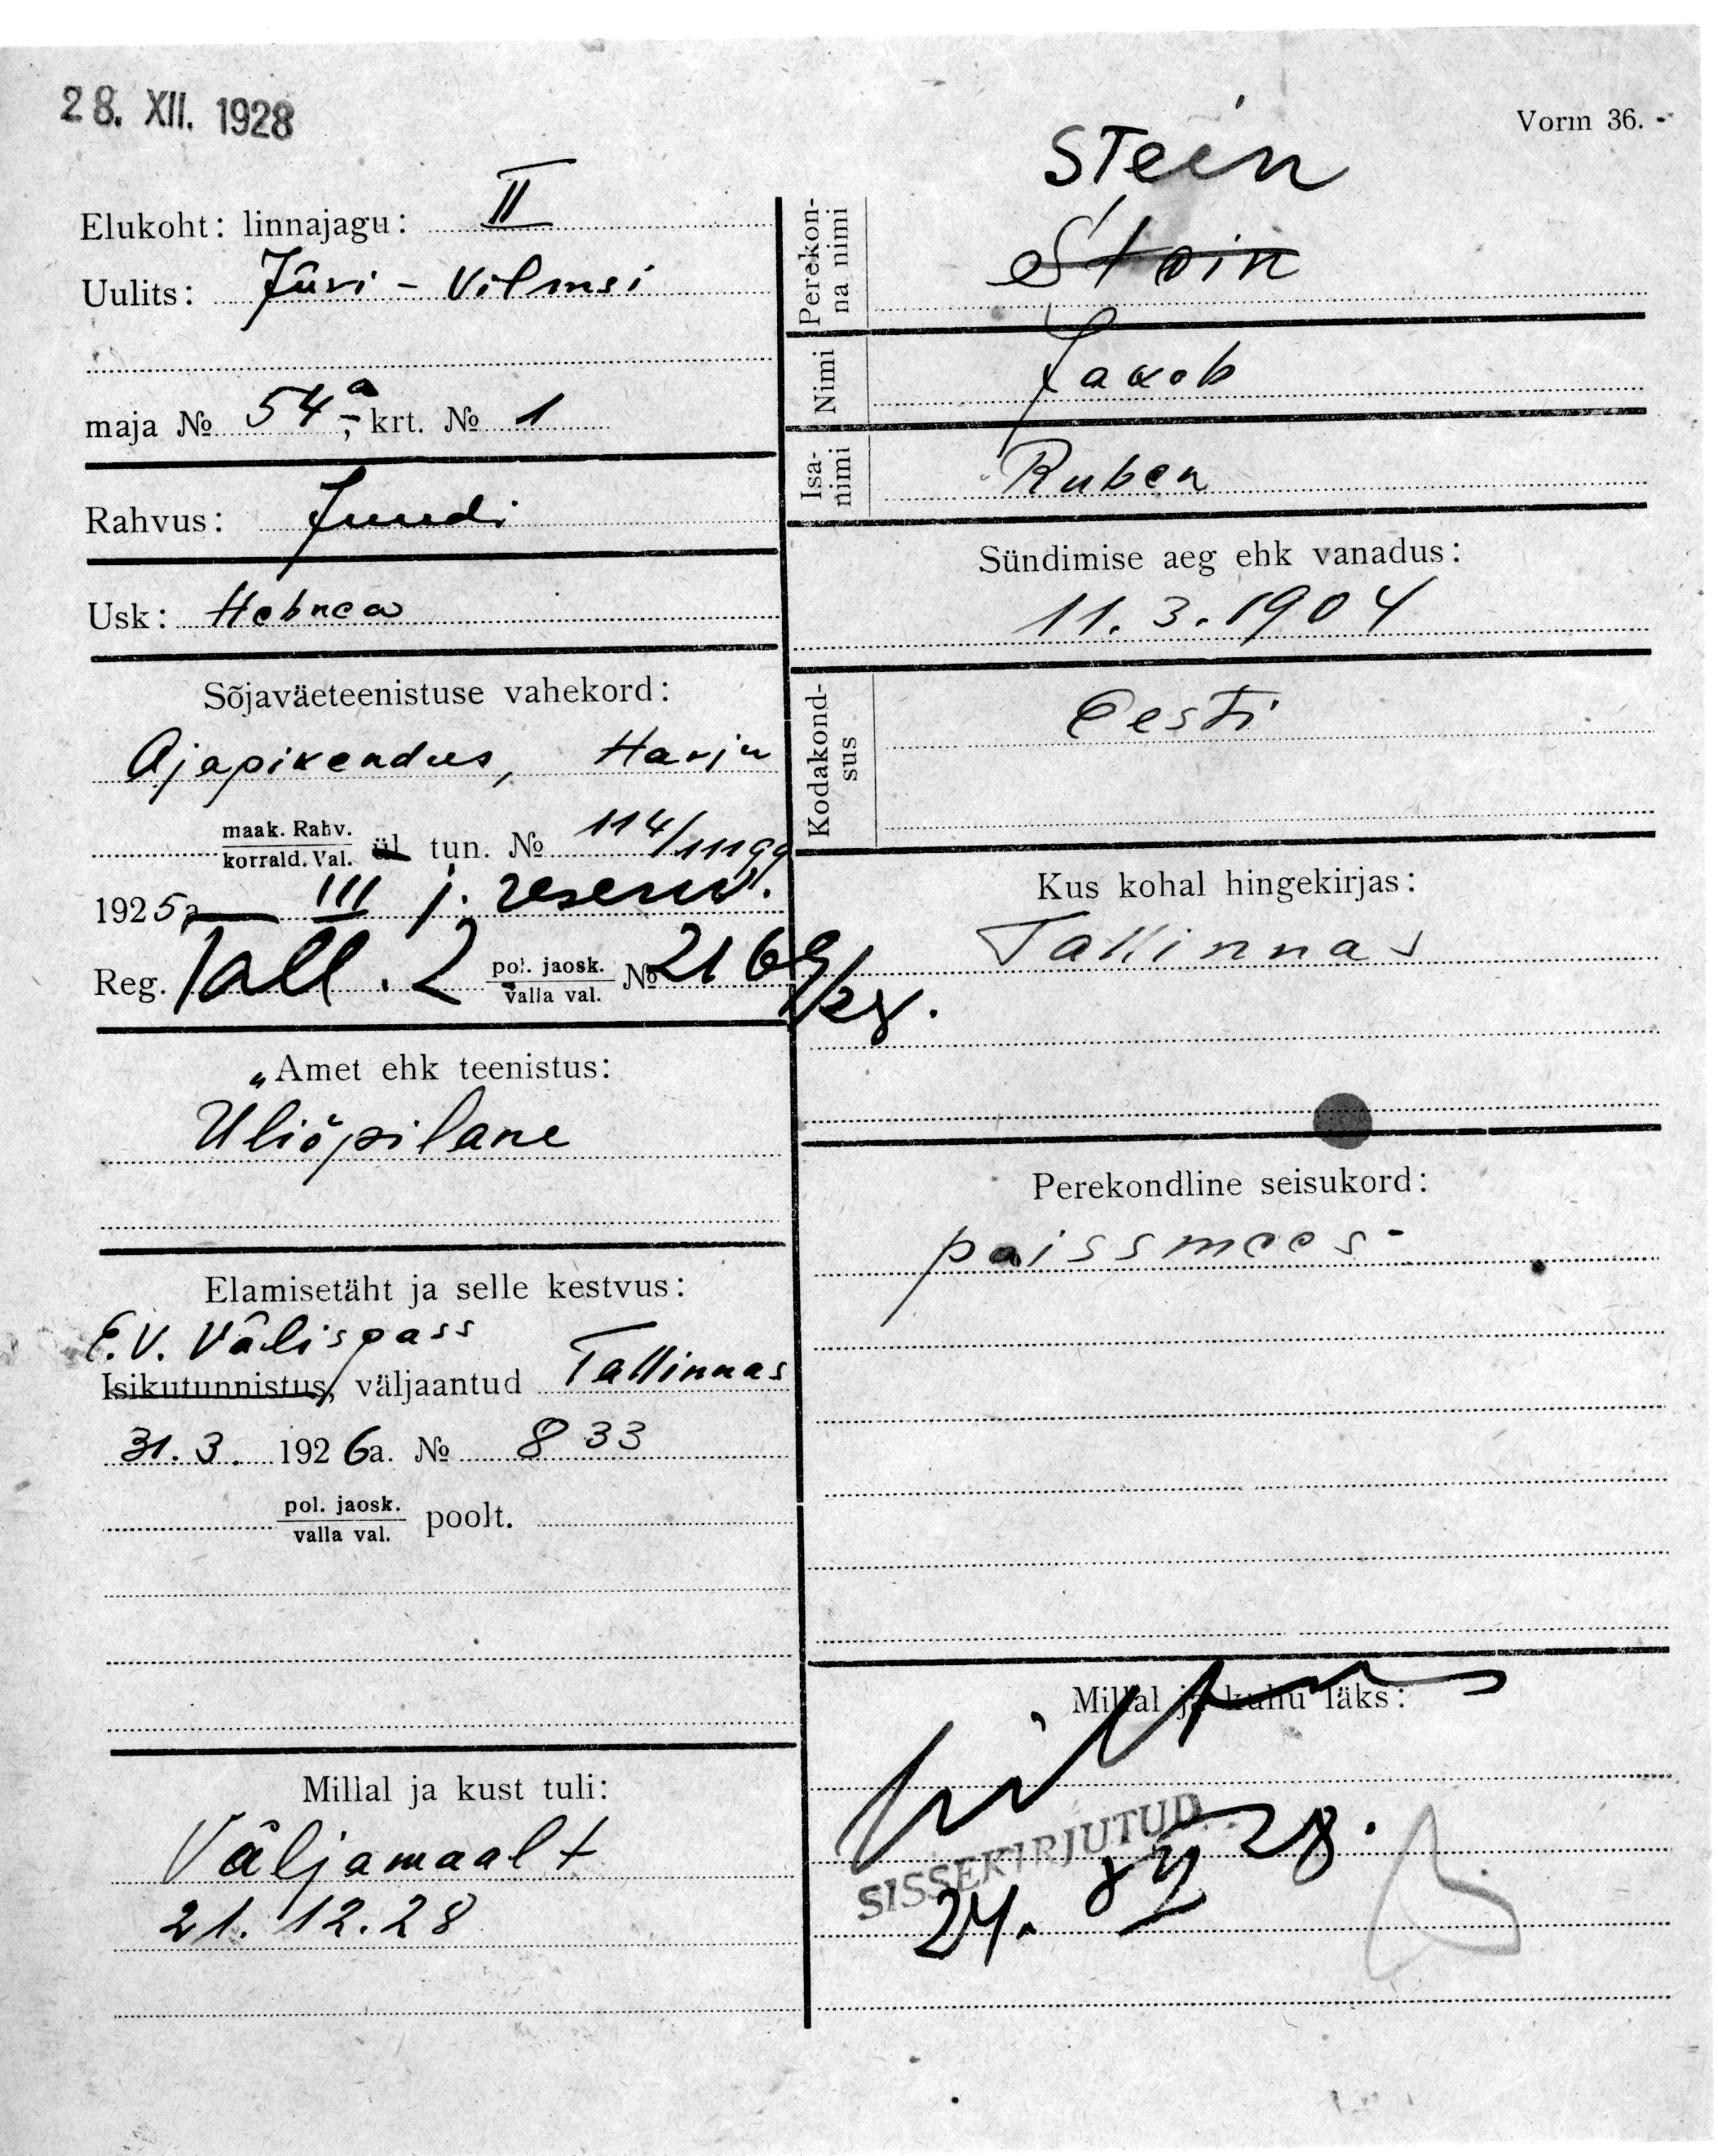 28. XII. 1928
Vorm 36.
Elukoht: linnajagu: II
Uulits: Jüri - Vilmsi
maja № 54a, krt. № 1
Rahvus: Juudi
Usk: Hebrea
Sõjaväeteenistuse vahekord:
Ajapikendus, Harju
maak. Rahv.
korrald. Val. ül tun. № 114/11199
1925a III j. reserv.
Reg. Tall. 2 pol. jaosk. № 2169/28.
valla val.
Amet ehk teenistus:
Üliõpilane
Elamisetäht ja selle kestvus:
E.V. Välispass
Isikutunnistus, väljaantud Tallinnas
31.3. 1926a. № 833
pol. jaosk.
valla val. poolt.
Millal ja kust tuli:
Väljamaalt
21.12.28
Stein
Perekon-
na nimi Stein
Nimi Jakob
Isa-
nimi Ruben
Sündimise aeg ehk vanadus:
11.3.1904
Kodakond-
sus Eesti
Kus kohal hingekirjas:
Tallinnas
Perekondline seisukord:
poissmees
Millal ja kuhu läks:
SISSEKIRJUTUD
24. XII 28.